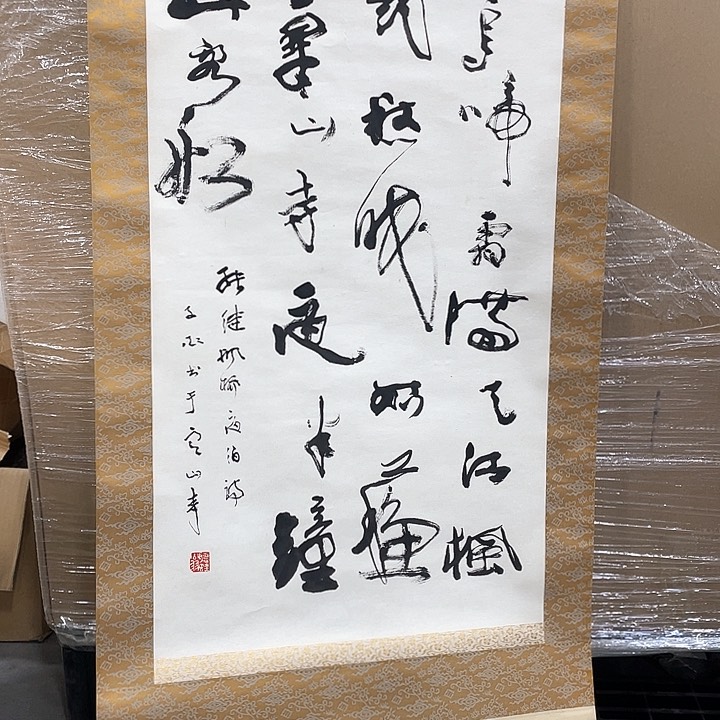 烏啼霜滿天江楓
對愁眠姑蘇
寒山寺夜半鐘
到客船
張継楓橋夜泊詩
書于寒山寺